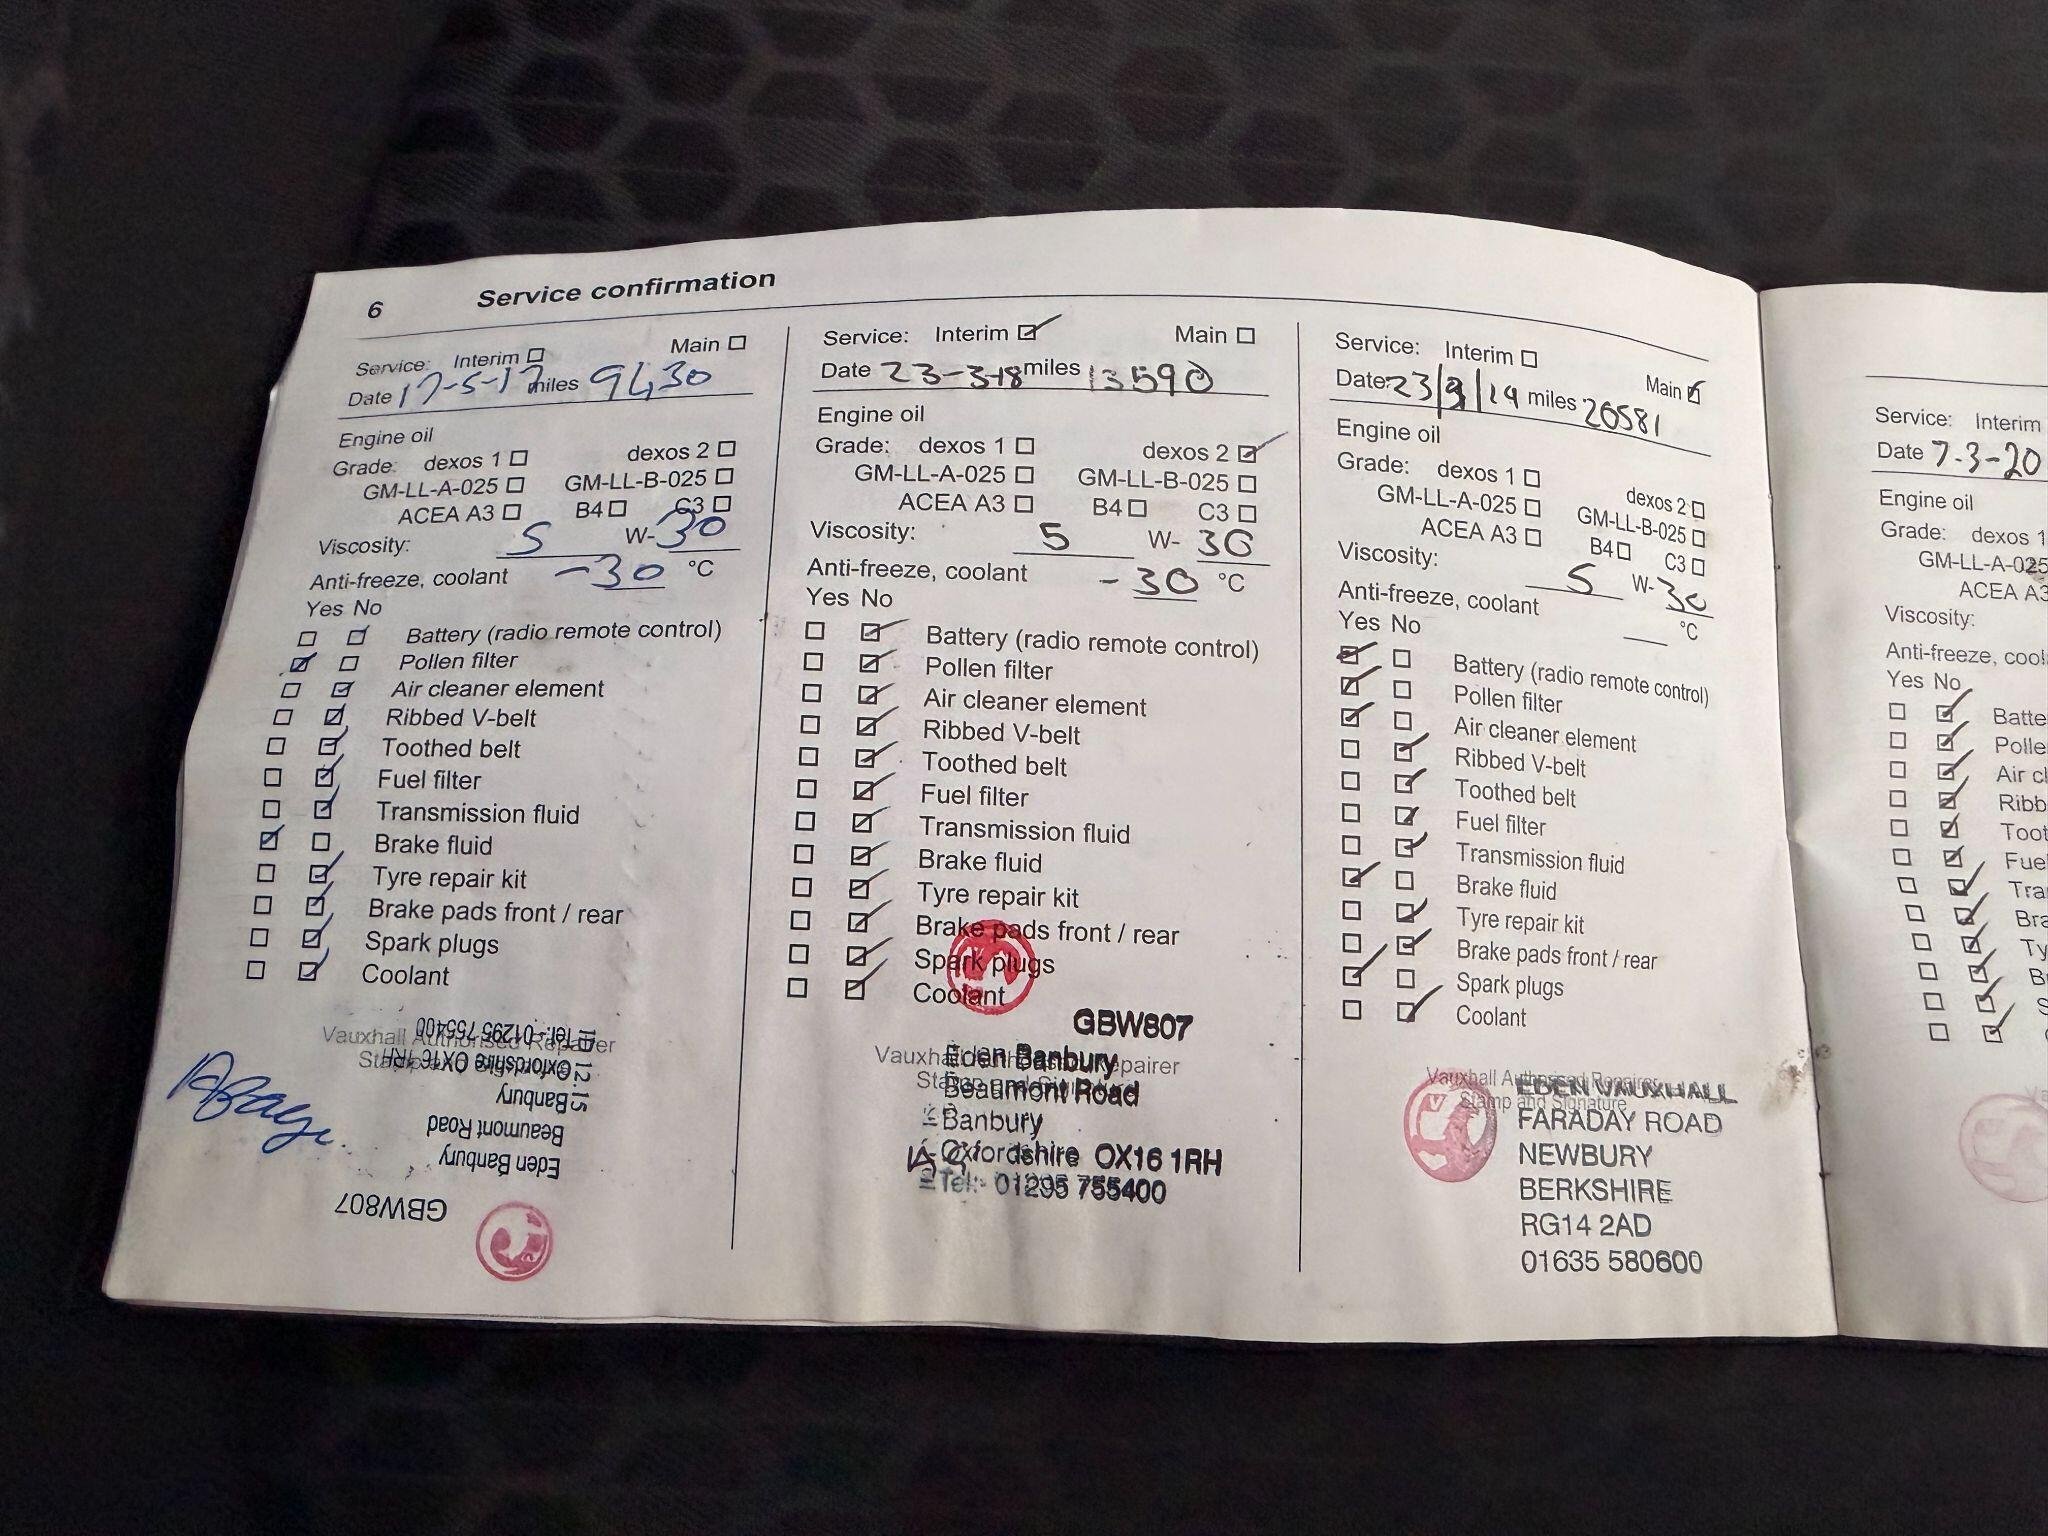 6 Service confirmation
Service: Interim Main
Date 17-5-17 miles 9430
Engine oil
Grade: dexos 1 dexos 2
GM-LL-A-025 GM-LL-B-025
ACEA A3 B4 C3
Viscosity: 5 W-30
Anti-freeze, coolant -30 °C
Yes No
Battery (radio remote control)
Pollen filter
Air cleaner element
Ribbed V-belt
Toothed belt
Fuel filter
Transmission fluid
Brake fluid
Tyre repair kit
Brake pads front / rear
Spark plugs
Coolant
Vauxhall Authorised Repairer
Stamp and Signature
GBW807
Eden Banbury
Beaumont Road
Banbury
Oxfordshire OX16 1RH
Tel:- 01295 755400
Service: Interim Main
Date 23-3-18 miles 13590
Engine oil
Grade: dexos 1 dexos 2
GM-LL-A-025 GM-LL-B-025
ACEA A3 B4 C3
Viscosity: 5 W- 30
Anti-freeze, coolant -30 °C
Yes No
Battery (radio remote control)
Pollen filter
Air cleaner element
Ribbed V-belt
Toothed belt
Fuel filter
Transmission fluid
Brake fluid
Tyre repair kit
Brake pads front / rear
Spark plugs
Coolant
GBW807
Vauxhall Authorised Repairer
Stamp and Signature
Eden Banbury
Beaumont Road
Banbury
Oxfordshire OX16 1RH
Tel:- 01295 755400
Service: Interim Main
Date: 23/ /19 miles 20581
Engine oil
Grade: dexos 1 dexos 2
GM-LL-A-025 GM-LL-B-025
ACEA A3 B4 C3
Viscosity: 5 W-30
Anti-freeze, coolant °C
Yes No
Battery (radio remote control)
Pollen filter
Air cleaner element
Ribbed V-belt
Toothed belt
Fuel filter
Transmission fluid
Brake fluid
Tyre repair kit
Brake pads front / rear
Spark plugs
Coolant
Vauxhall Authorised Repairer
Stamp and Signature
EDEN VAUXHALL
FARADAY ROAD
NEWBURY
BERKSHIRE
RG14 2AD
01635 580600
Service: Interim
Date 7-3-20
Engine oil
Grade: dexos 1
GM-LL-A-025
ACEA A3
Viscosity:
Anti-freeze, cool
Yes No
Batte
Polle
Air cl
Ribb
Toot
Fue
Tra
Bra
Ty
B
S